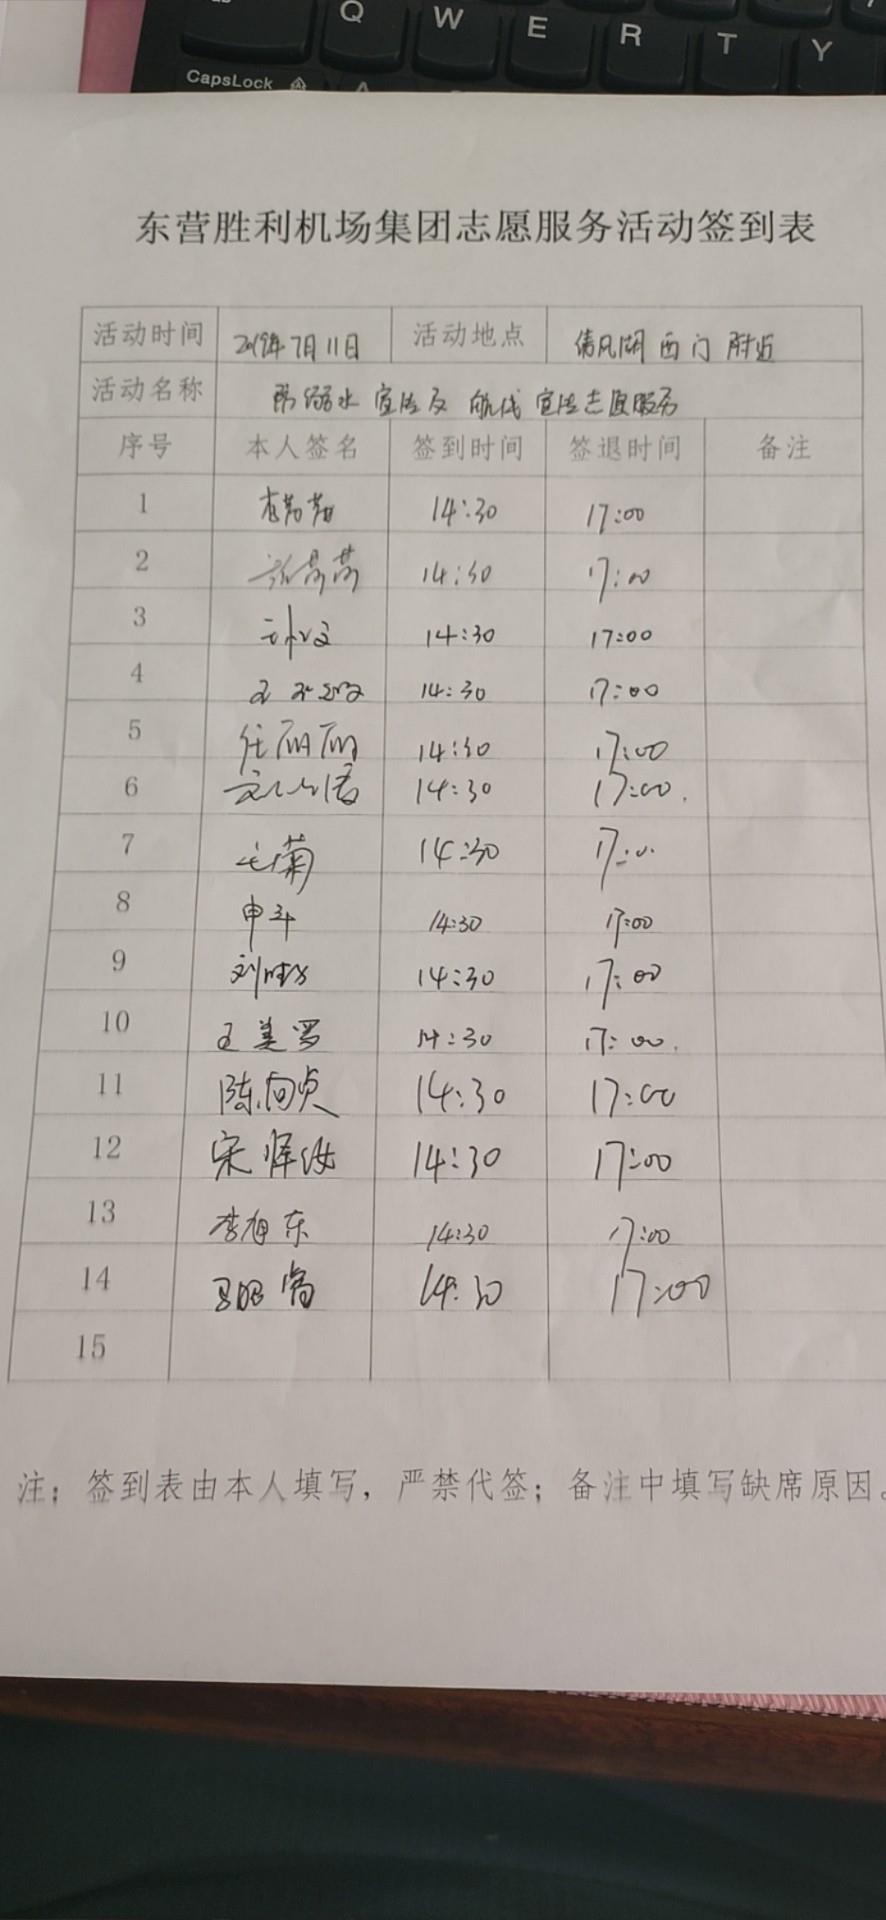 Q W E R T Y
CapsLock A
东营胜利机场集团志愿服务活动签到表
活动时间 2019年7月11日 活动地点 清风湖 西门 附近
活动名称 防溺水 宣传及 航线 宣传志愿服务
序号 本人签名 签到时间 签退时间 备注
1 14:30 17:00
2 14:30 17:00
3 14:30 17:00
4 14:30 17:00
5 任丽丽 14:30 17:00
6 14:30 17:00
7 14:30 17:00
8 申斗 14:30 17:00
9 14:30 17:00
10 王美罗 14:30 17:00
11 陈向贞 14:30 17:00
12 宋 14:30 17:00
13 李 东 14:30 17:00
14 14:30 17:00
15
注：签到表由本人填写，严禁代签；备注中填写缺席原因。